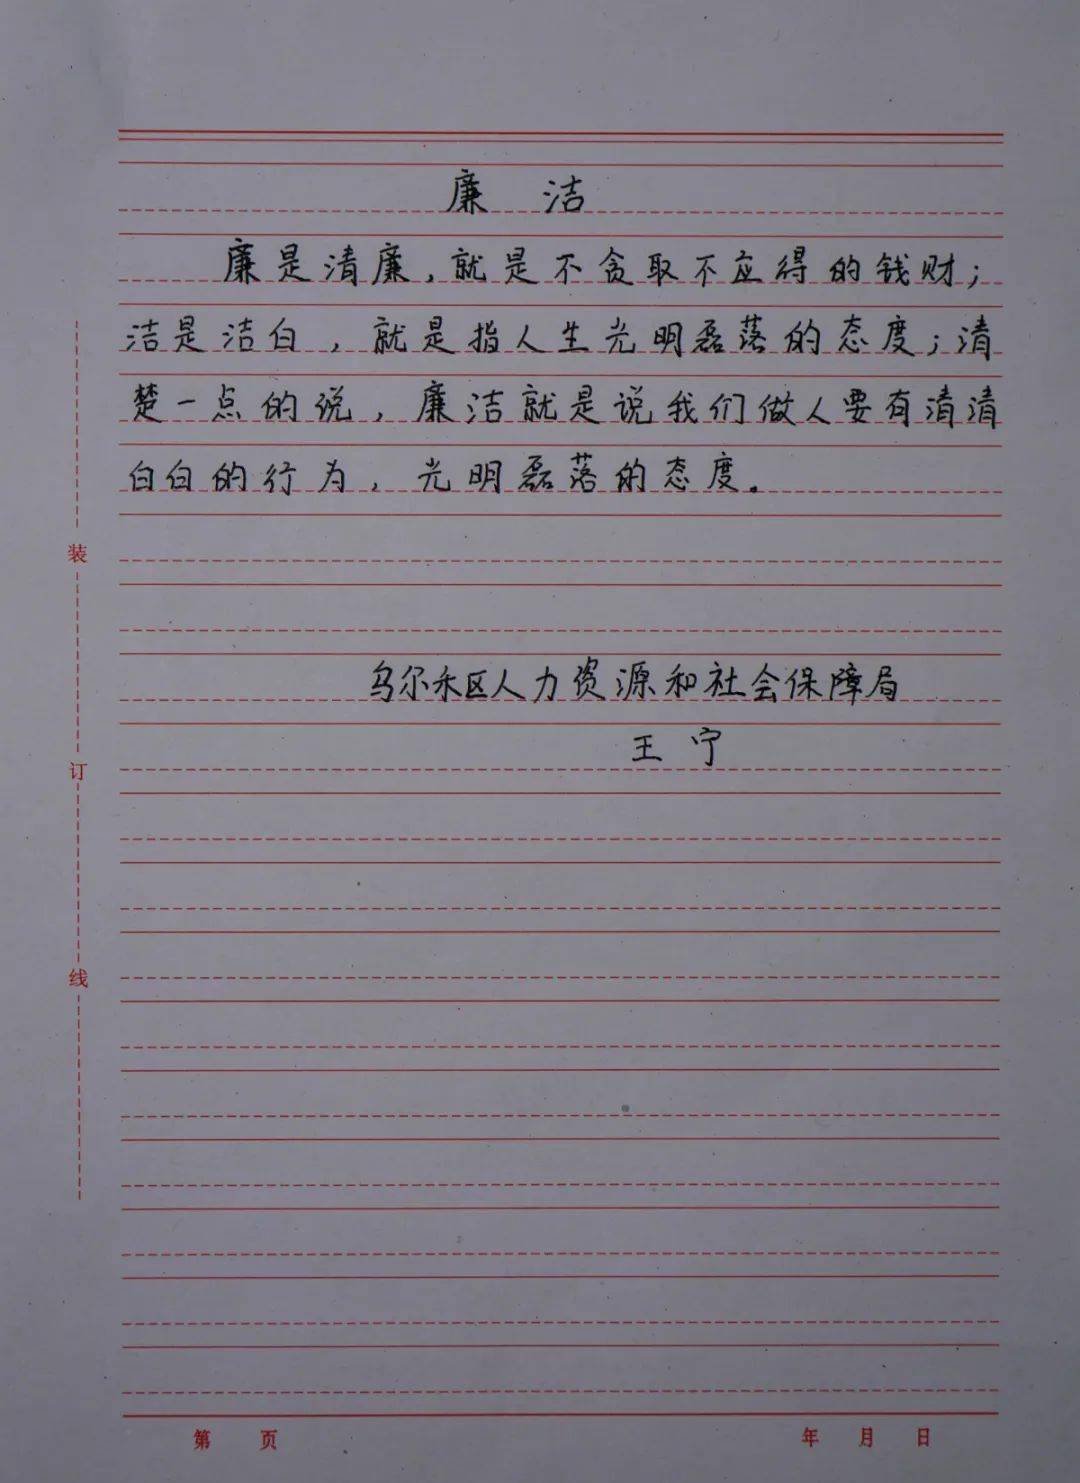 廉 洁
廉是清廉，就是不贪取不应得的钱财；
洁是洁白，就是指人生光明磊落的态度；清
楚一点的说，廉洁就是说我们做人要有清清
白白的行为，光明磊落的态度。
乌尔禾区人力资源和社会保障局
王宁
装
订
线
第 页 年 月 日